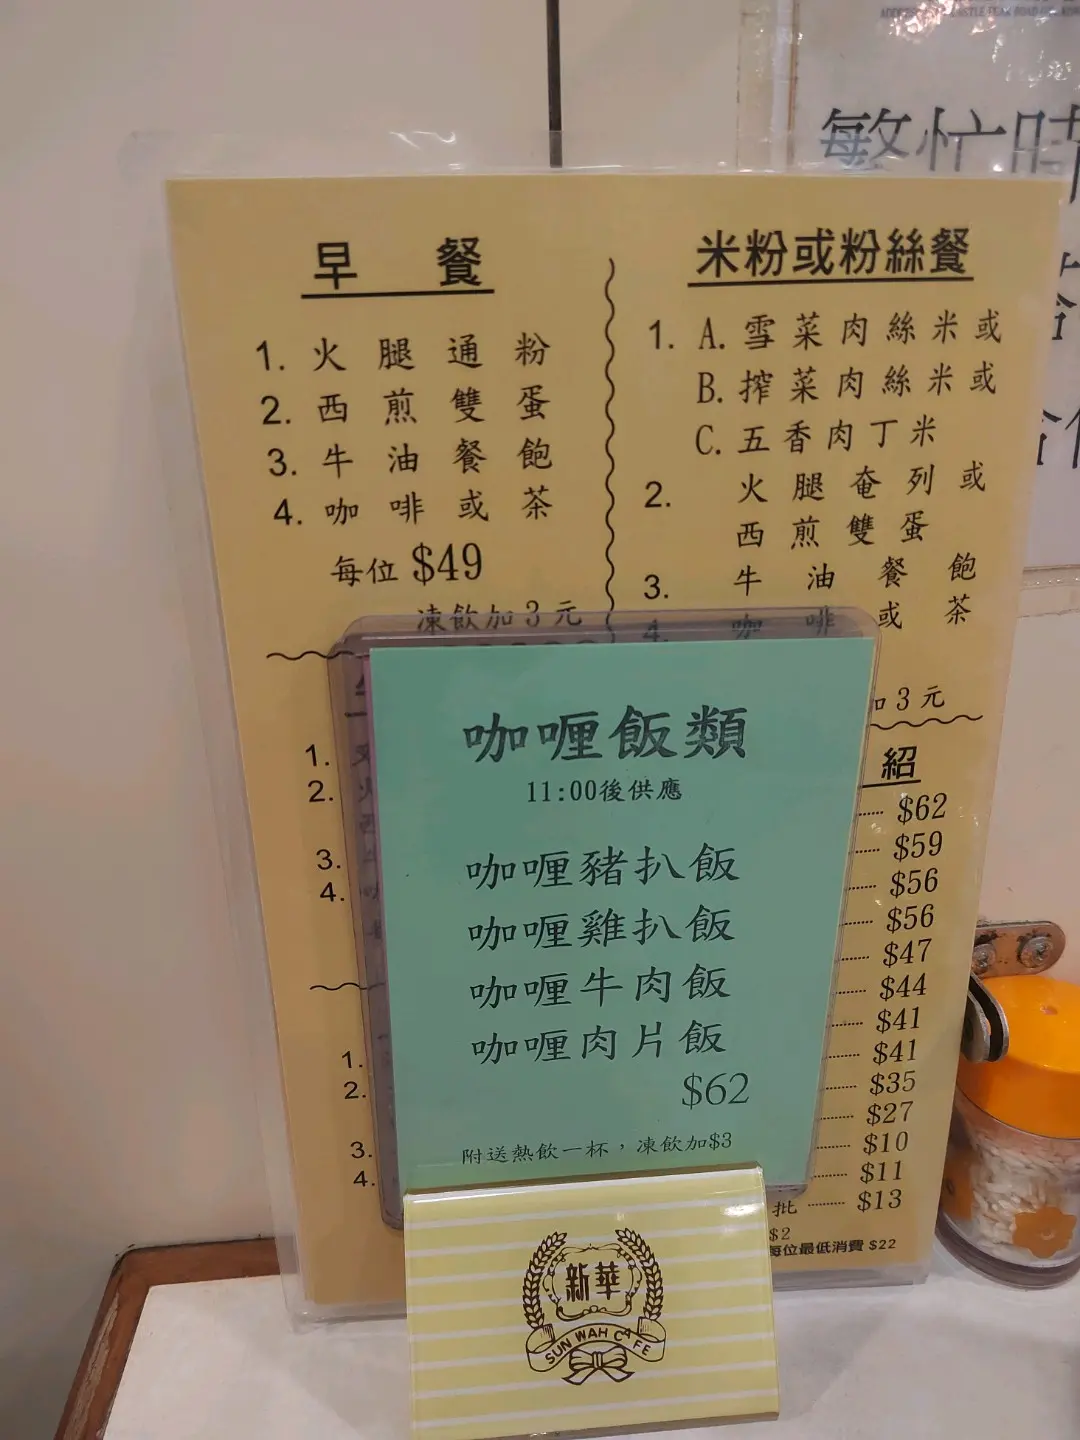 繁忙時
早 餐
1. 火腿通粉
2. 西煎雙蛋
3. 牛油餐飽
4. 咖啡或茶
每位 $49
凍飲加3元
米粉或粉絲餐
1. A. 雪菜肉絲米或
B. 搾菜肉絲米或
C. 五香肉丁米
2. 火腿奄列或
西煎雙蛋
3. 牛油餐飽
4. 咖啡或茶
加3元
1.
2.
3.
4.
1.
2.
3.
4.
紹
$62
$59
$56
$56
$47
$44
$41
$41
$35
$27
$10
$11
批 $13
$2
每位最低消費 $22
咖喱飯類
11:00後供應
咖喱豬扒飯
咖喱雞扒飯
咖喱牛肉飯
咖喱肉片飯
$62
附送熱飲一杯，凍飲加$3
新華
SUN WAH CAFE